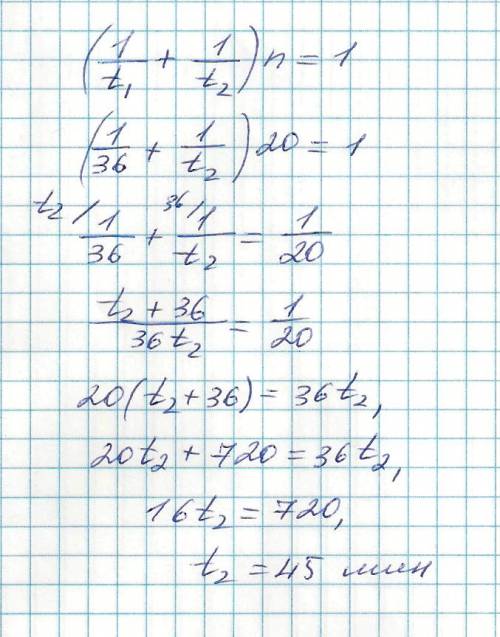 (1/t₁ + 1/t₂)n = 1
(1/36 + 1/t₂)20 = 1
t₂/ 1/36 + 36/ 1/t₂ = 1/20
t₂ + 36 / 36t₂ = 1/20
20(t₂ + 36) = 36t₂,
20t₂ + 720 = 36t₂,
16t₂ = 720,
t₂ = 45 мин